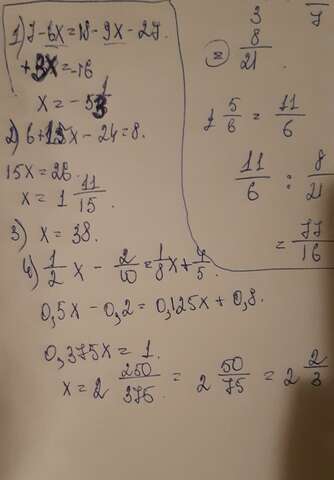 1) 7-6x=18-9x-27
+3x=-16
x=-5 1/3
2) 6+15x-24=8.
15x=26.
x=1 11/15.
3) x=38.
4) 1/2 x - 2/10 = 1/8 x + 4/5.
0,5x-0,2=0,125x+0,8.
0,375x=1.
x=2 250/375 = 2 50/75 = 2 2/3
3 7
= 8/21.
1 5/6 = 11/6
11/6 : 8/21
= 77/16